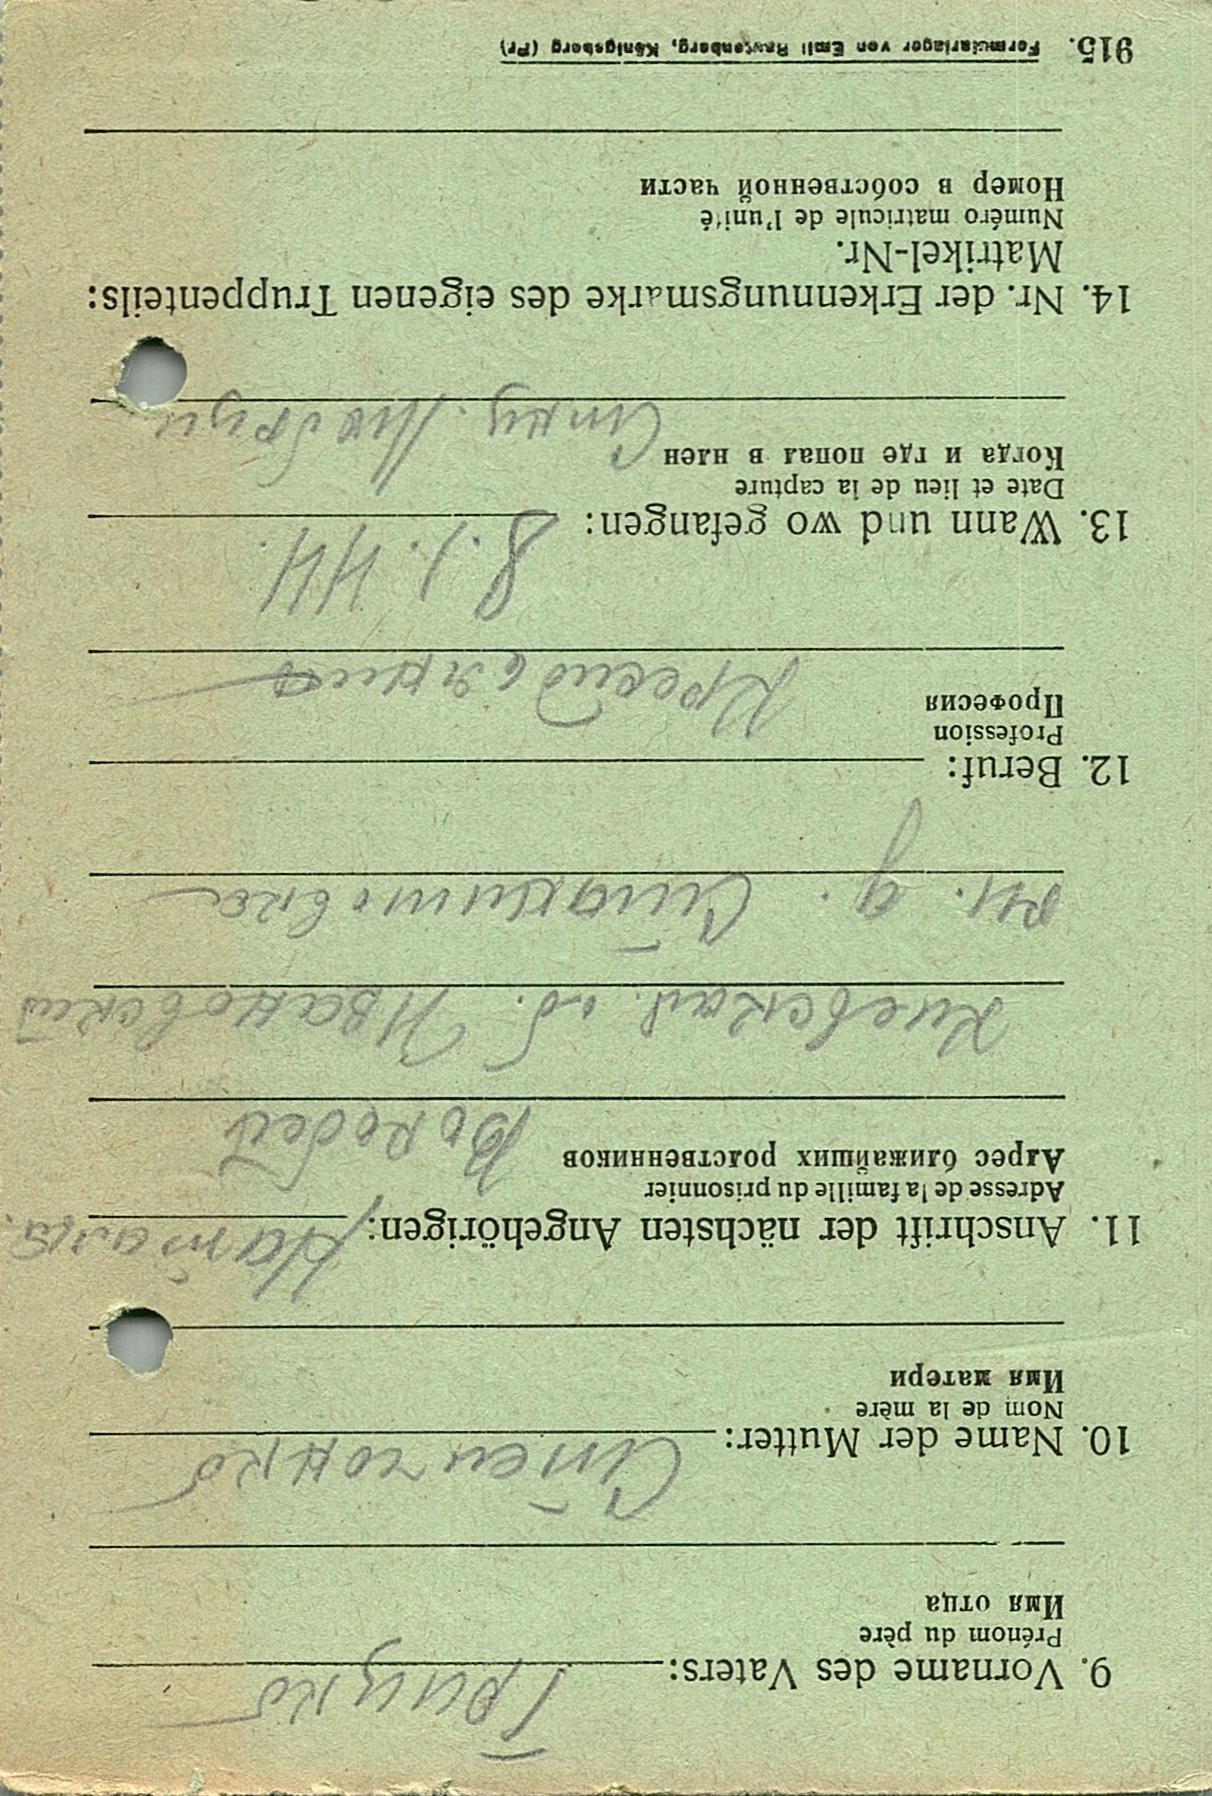 9. Vorname des Vaters: Грицко
Prénom du père
Имя отца
10. Name der Mutter: Степчонко
Nom de la mère
Имя матери
11. Anschrift der nächsten Angehörigen: Наталя.
Adresse de la famille du prisonnier
Адрес ближайших родственников
Воробей
Киевская об. Ивановский
рн. д.
12. Beruf:
Profession
Професия
Крестьянин
13. Wann und wo gefangen: 8.1.44.
Date et lieu de la capture
Когда и где попал в плен
14. Nr. der Erkennungsmarke des eigenen Truppenteils:
Matrikel-Nr.
Numéro matricule de l'unité
Номер в собственной части
915. Formularlager von Emil Rautenberg, Königsberg (Pr)